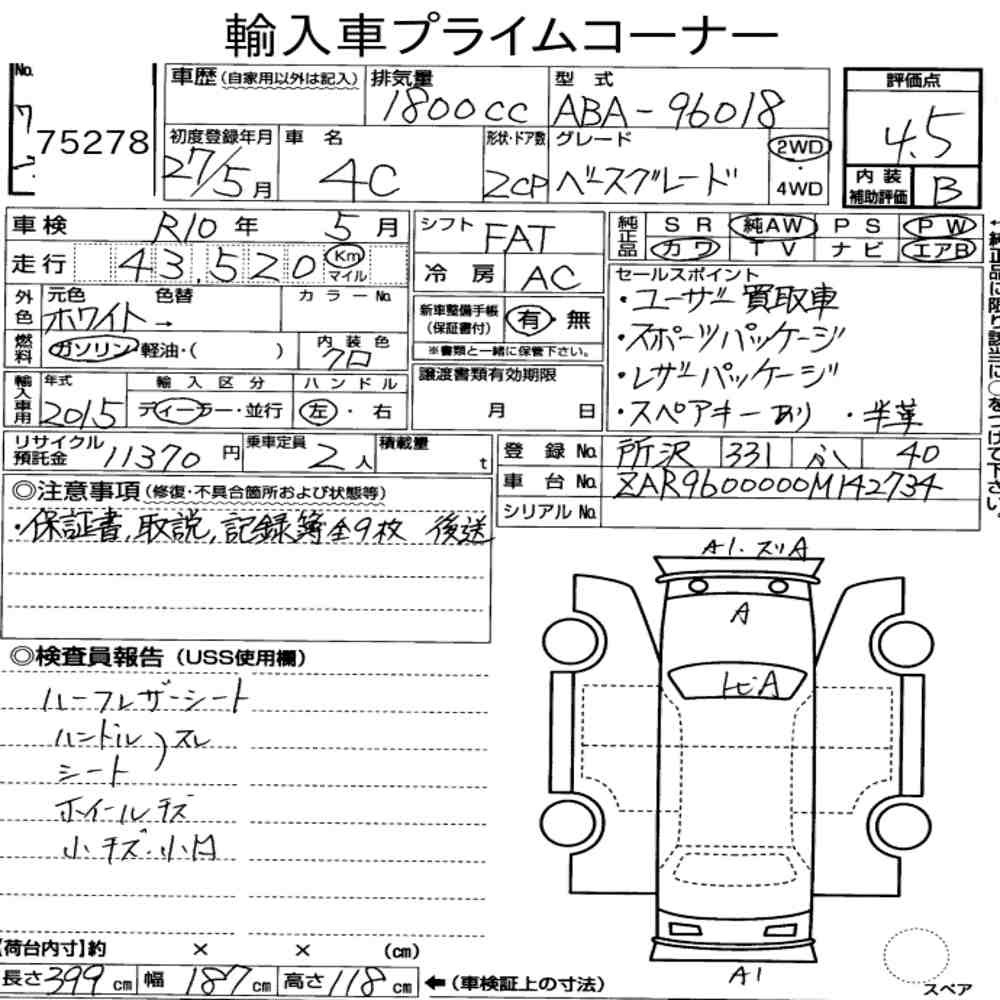 輸入車プライムコーナー
No. 75278
車歴（自家用以外は記入） 排気量 1800cc 型式 ABA-96018
評価点 4.5
初度登録年月 27/5月 車名 4C 形状・ドア数 2CP グレード ベースグレード 2WD・4WD
内装補助評価 B
車検 R10年 5月
走行 43,520 Km マイル
シフト FAT
冷房 AC
純正品 SR 純AW PS PW
カワ TV ナビ エアB
セールスポイント
・ユーザー買取車
・スポーツパッケージ
・レザーパッケージ
・スペアキーあり ・半革
外色 元色 ホワイト→ 色替 カラーNo.
燃料 ガソリン・軽油・（ ） 内装色 クロ
新車整備手帳（保証書付） 有・無
※書類と一緒に保管下さい。
輸入車用 年式 2015 輸入区分 ディーラー・並行 ハンドル 左・右
譲渡書類有効期限 月 日
リサイクル預託金 11370円 乗車定員 2人 積載量 t
登録No. 所沢 331 40
車台No. ZAR9600000M142734
シリアルNo.
◎注意事項（修復・不具合箇所および状態等）
・保証書,取説,記録簿全9枚 後送
◎検査員報告（USS使用欄）
ハーフレザーシート
ハンドル
シート
）スレ
ホイールキズ
小キズ・小凹
A1.スリA
A
トビA
A1
スペア
【荷台内寸】約 × × （cm）
長さ399cm 幅187cm 高さ118cm ←（車検証上の寸法）